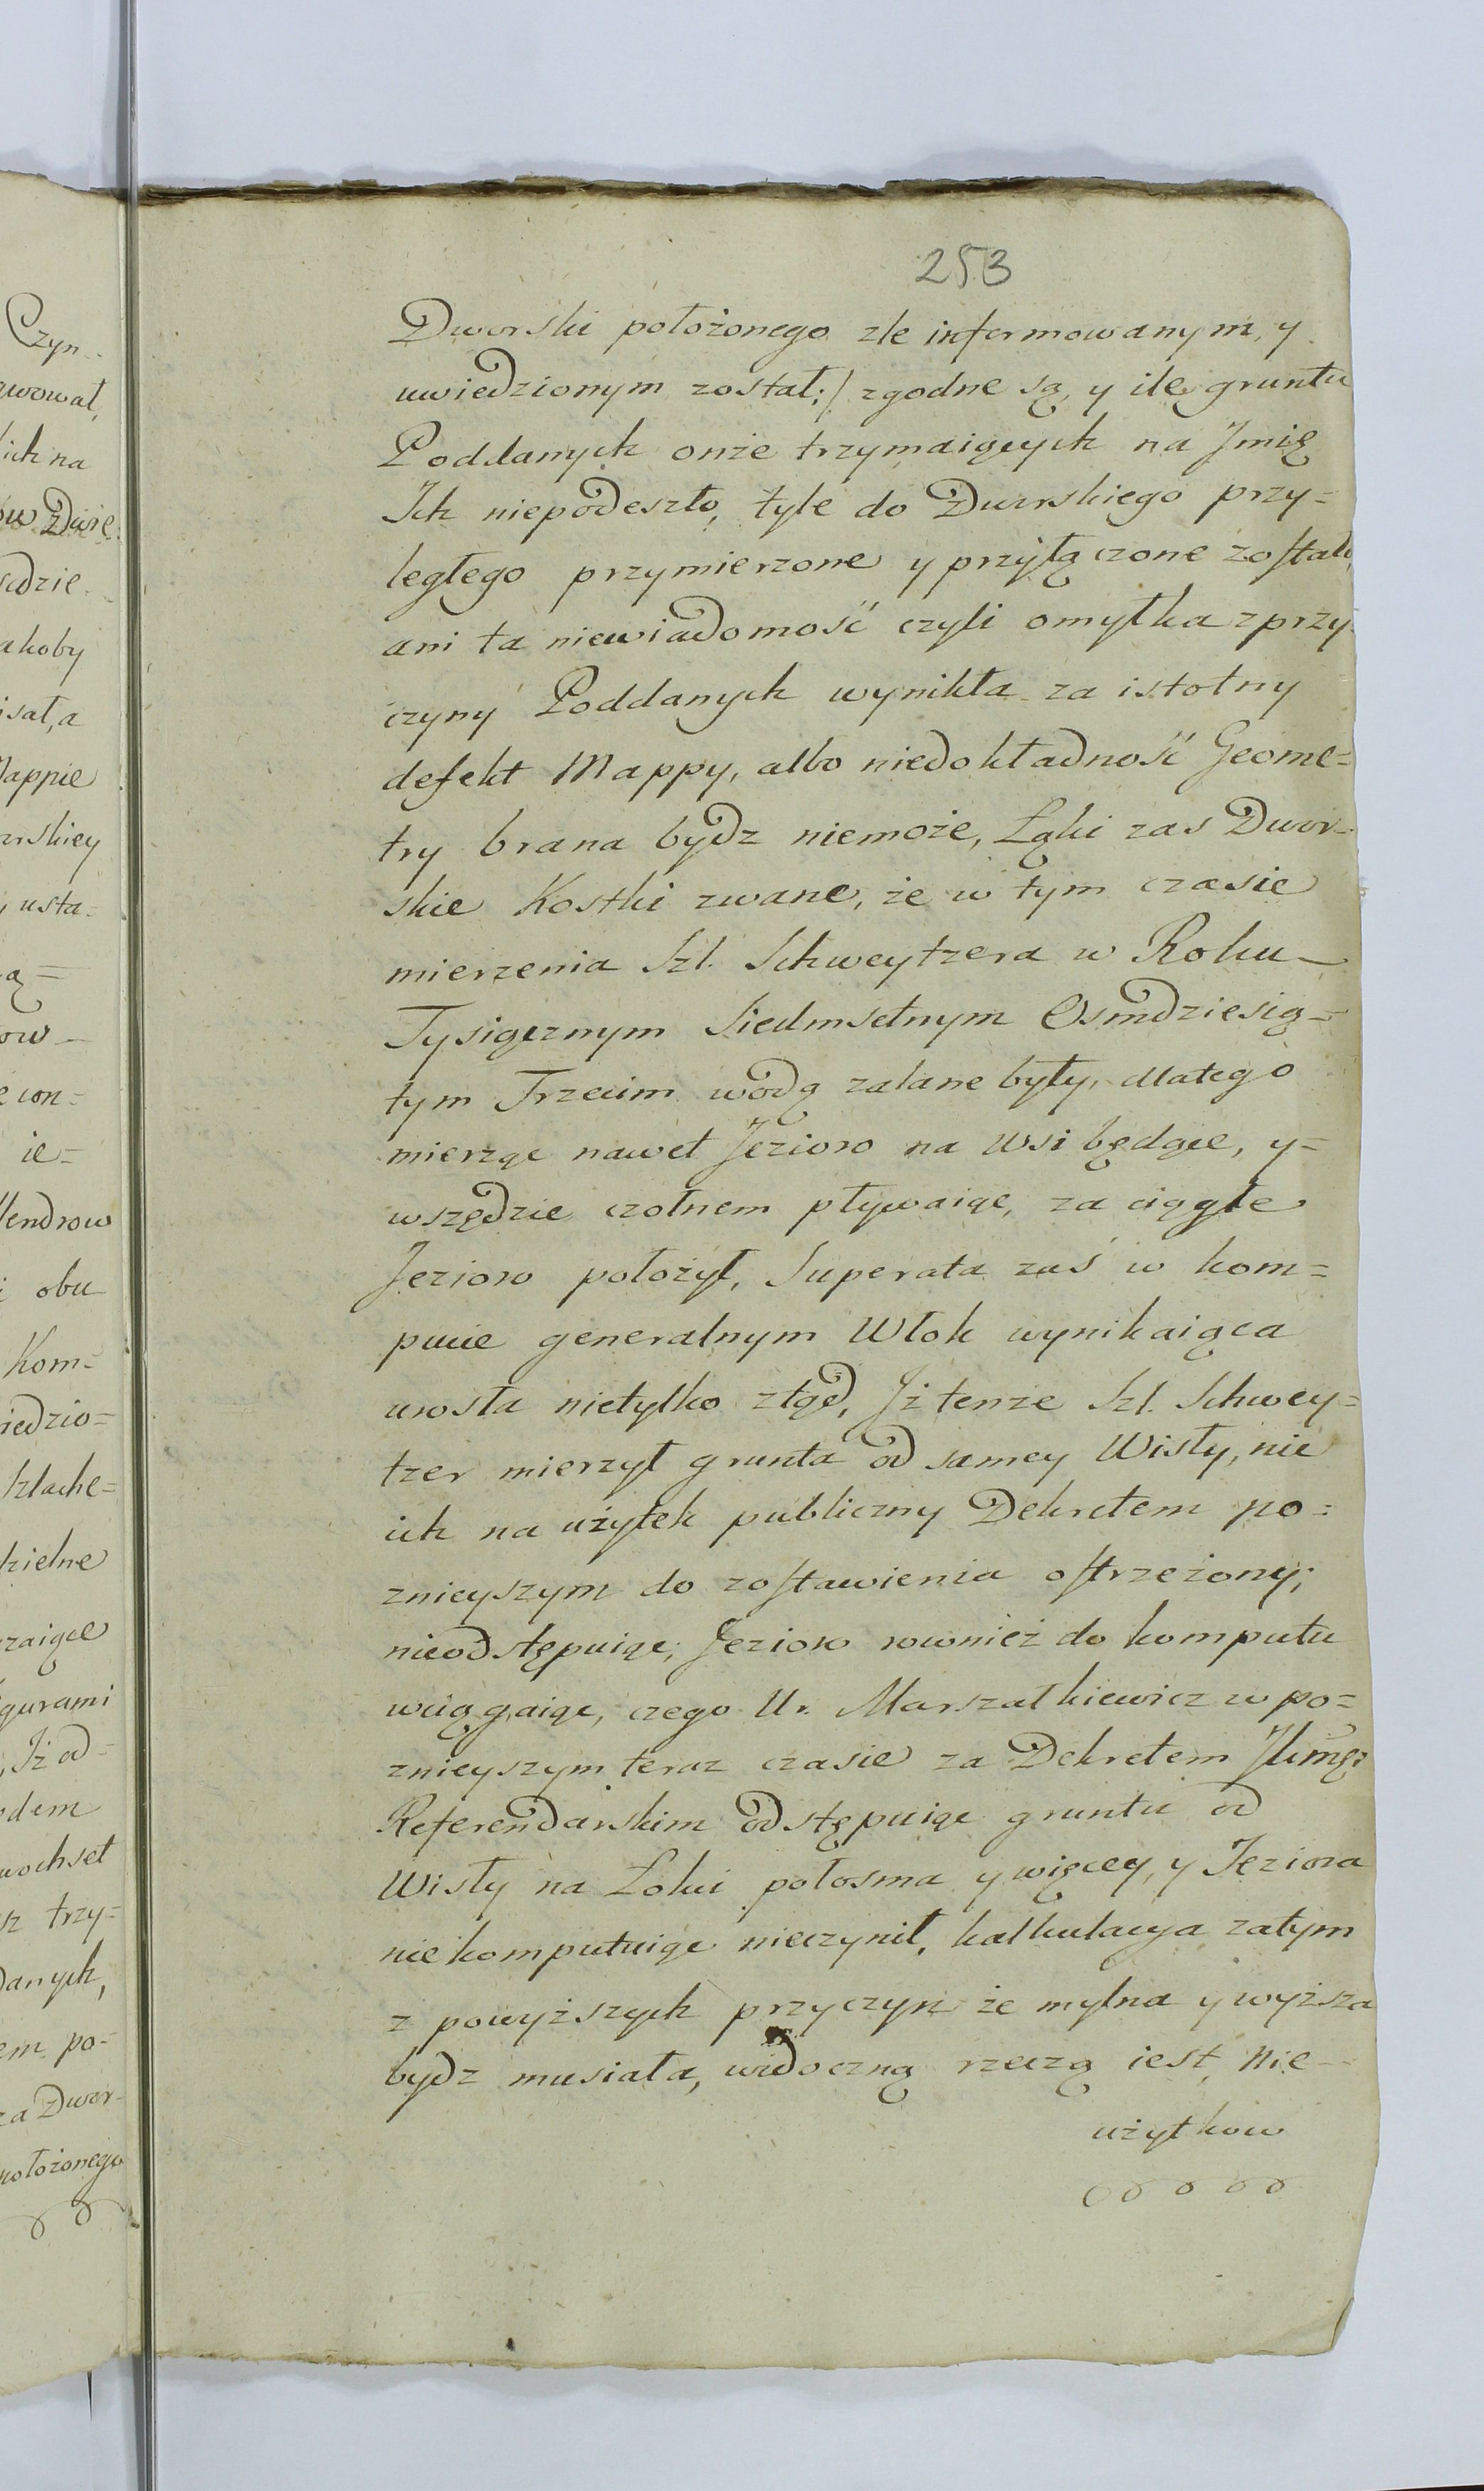 253
Dworski położonego zle informowanym, y
uwiedzionym został:/ zgodne są, y ile gruntu
Poddanych onże trzymaiących na Jmię
Ich niepodeszło, tyle do Dworskiego przy=
ległego przymierzone y przyłączone zostało,
ani ta niewiadomość czyli omyłka z przy
czyny Poddanych wynikła za istotny
defekt Mappy, albo niedokładność Geome=
try brana bydz niemoże, Łąki zas Dwor-
skie Kostki zwane, że w tym czasie
mierzenia Szl. Schweytzera w Roku
Tysiącznym Siedmsetnym Osmdziesią=
tym Trzecim wodą zalane były, dlatego
mierząc nawet Jezioro na Wsi będące, y=
wszędzie czołnem pływaiąc, za ciągłe
Jezioro położył, Superata zaś w kom=
pucie generalnym Włok wynikaiąca
urosła nietylko ztąd, Iż tenze Szl. Schwey=
tzer mierzył grunta od samey Wisły, nic
ich na użytek publiczny Dekretem po=
znieyszym do zostawienia ostrzeżony,
nieodstępuiąc, Jezioro rownież do komputu
wciągaiąc, czego Ur. Marszałkiewicz w po=
znieyszym teraz czasie za Dekretem
Referendarskim odstępuiąc gruntu od
Wisły na Łokci połosma y więcey, y Jeziora
nie komputuiąc nieczynił, kalkulacya zatym
z powyższych przyczyn że mylna y wyższa
bydz musiała, widoczną rzeczą iest, Nie-
użytkow
Czyn-
wował,
ich na
ow Dwie
edzie
akoby
isał, a
Mappie
orskiey
y usta=
ą=
ow-
e con=
ie=
endrow
i obu
Kom=
iedzio=
Szlache=
kielne
zaiące
gurami
, Iż od=
dem
wochset
trzy=
danych,
em po-
za Dwor-
położonego